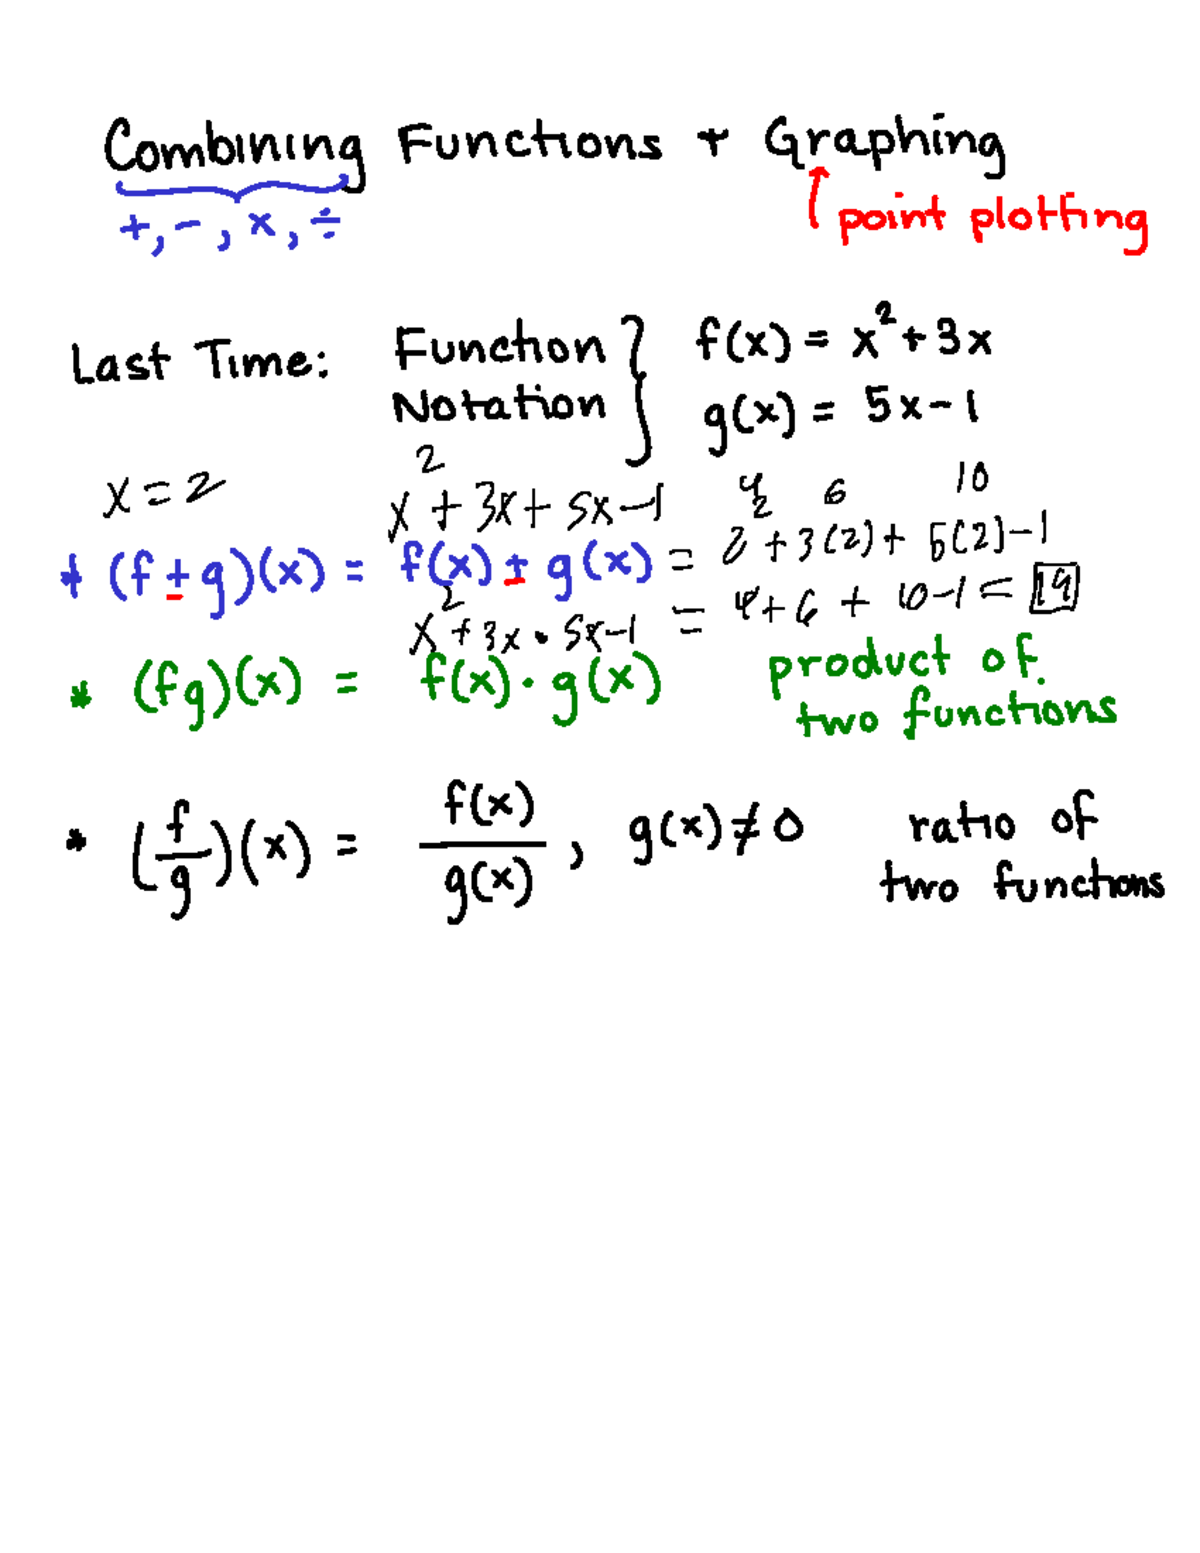 Combining Functions + Graphing
+, -, x, ÷
point plotting
Last Time: Function Notation } f(x) = x² + 3x
g(x) = 5x - 1
x = 2
x² + 3x + 5x - 1
4 6 10
(f ± g)(x) = f(x) ± g(x) = 2² + 3(2) + 5(2) - 1
x² + 3x · 5x - 1 = 4 + 6 + 10 - 1 = 19
* (fg)(x) = f(x) · g(x) product of
two functions
* (f/g)(x) = f(x)/g(x), g(x) ≠ 0 ratio of
two functions